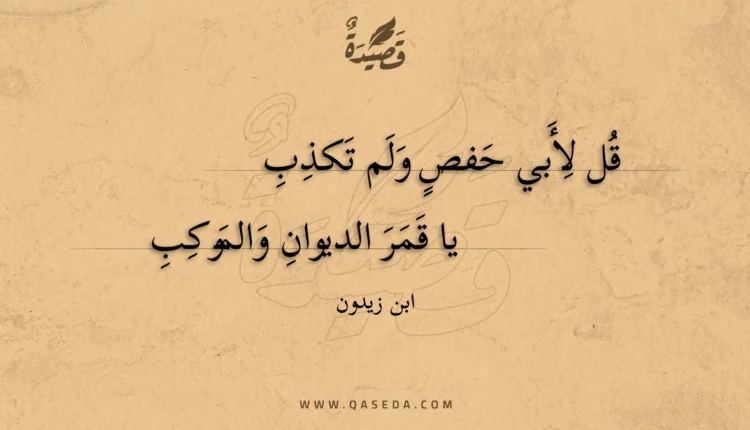 قَصِيْدَةٌ
قُل لِأَبي حَفصٍ وَلَم تَكذِبِ
يا قَمَرَ الديوانِ وَالمَوكِبِ
ابن زيدون
WWW.QASEDA.COM